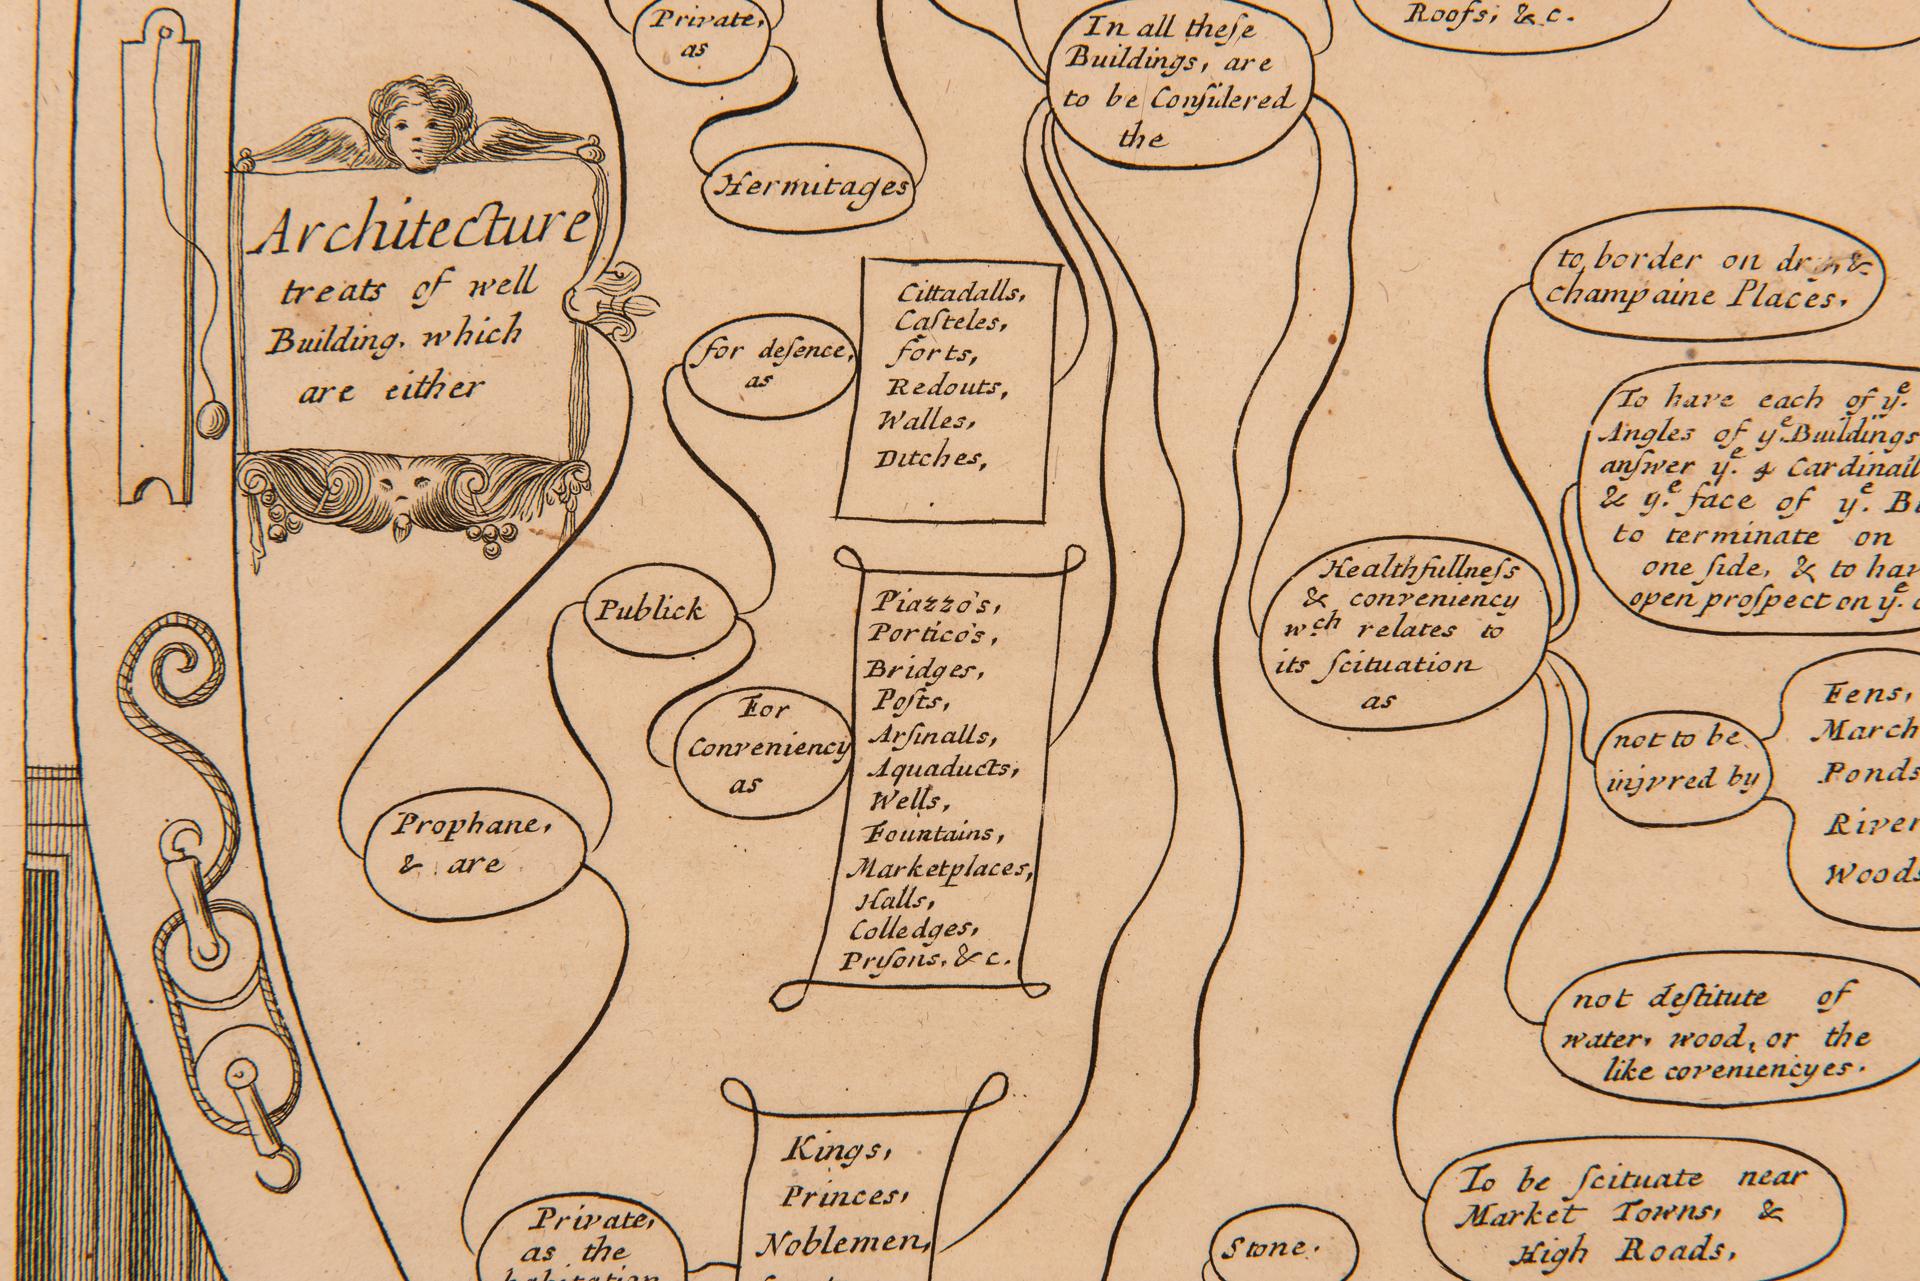 Private,
as
Hermitages
In all theſe
Buildings, are
to be Conſidered
the
Roofs; &c.
Architecture
treats of well
Building, which
are either
for defence,
as
Cittadalls,
Caſteles,
forts,
Redouts,
Walles,
Ditches,
Publick
For
Conveniency
as
Piazzo's,
Portico's,
Bridges,
Poſts,
Arſinalls,
Aquaducts,
Wells,
Fountains,
Marketplaces,
Halls,
Colledges,
Pryſons, &c.
Prophane,
& are
Private,
as the
habitation
Kings,
Princes,
Noblemen,
Healthfullneſs
& conveniency
wch relates to
its ſcituation
as
to border on &
champaine Places.
To have each of ye.
Angles of ye Buildings
anſwer ye. 4 Cardinall
& ye. face of ye.
to terminate on
one ſide, & to
open proſpect on ye.
not to be
injvred by
Fens,
March
Ponds
River
Woods
not deſtitute of
water, wood, or the
like coveniencyes.
To be ſcituate near
Market Towns, &
High Roads,
Stone.